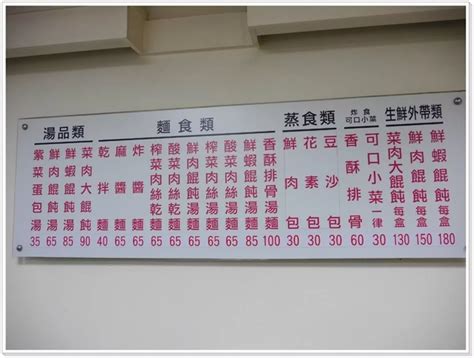 湯品類
紫菜蛋包湯 35
鮮肉餛飩湯 65
鮮蝦餛飩湯 85
菜肉大餛飩湯 90
麵食類
乾麵 40
麻醬麵 65
炸醬麵 65
榨菜肉絲乾麵 65
酸菜肉絲乾麵 65
鮮肉餛飩湯麵 65
榨菜肉絲湯麵 65
酸菜肉絲湯麵 65
鮮蝦餛飩湯麵 85
香酥排骨湯麵 100
蒸食類
鮮肉包 30
花素包 30
豆沙包 30
炸食
可口小菜
香酥排骨 60
可口小菜一律 30
生鮮外帶類
菜肉大餛飩每盒 130
鮮肉餛飩每盒 150
鮮蝦餛飩每盒 180